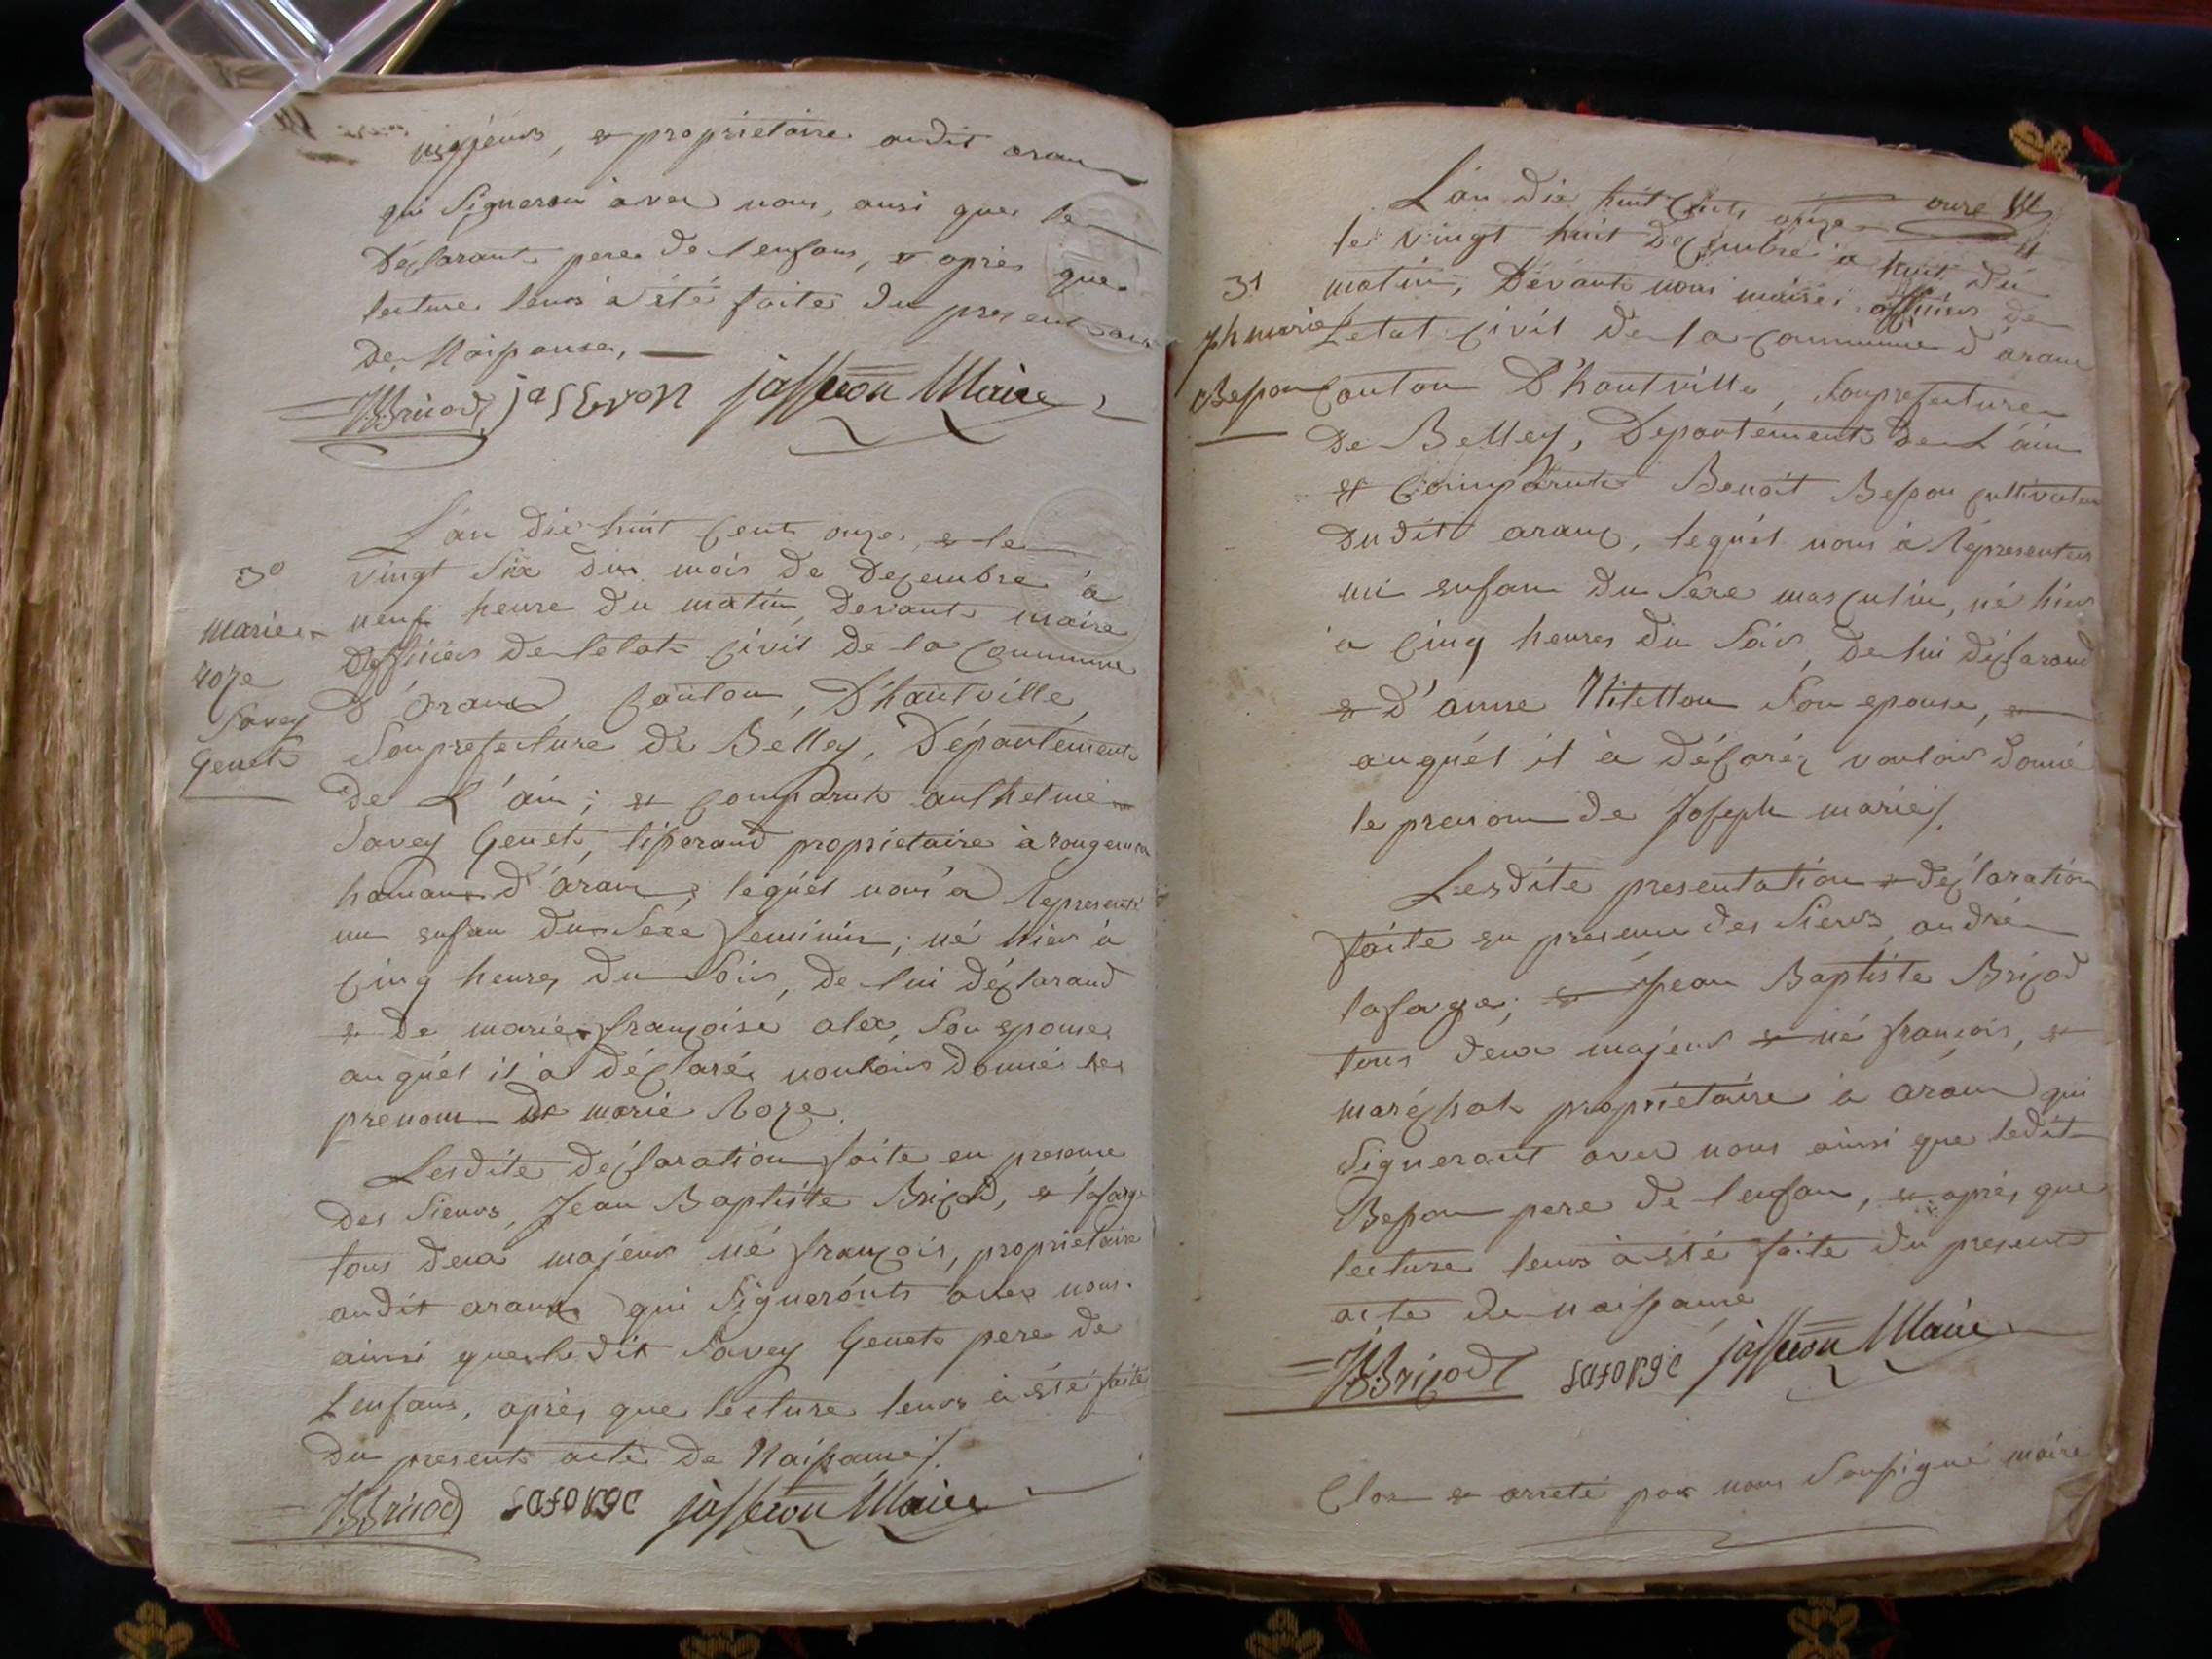 majeurs, et proprietaire audit aran
qui Signeront avec nous, ausi que le
Déclarant pere de lenfant, et apres que
lecture leurs a été faite du present acte
De Naissance,
JBBrucod jasseron jasseron Maire
30
Marie
roze
Savey
Genet
L'an dix huit cent onze, et le
vingt Six du mois de Decembre à
neuf heure du matin, devant maire
Officier de letat Civil de la Commune
d'aranc Canton, D'hautville,
Souprefecture de Belley, Département
de L'ain; et Comparut anthelme
Savey Genet, tisserand proprietaire à rougemon
hamau d'aran, lequel nous a Representé
un enfan du Sexe feminin; né hier à
Cinq heures du Soir, de lui déclarand
et de marie françoise alex, Son epouse
auquél il à déclaré vouloir donné les
prenom de marie Roze.
Lesdite declaration faite en presence
des Sieurs, Jean Baptiste Brucod, et lafarge
tous deux majeur né françois, proprietaire
audit aranc qui Signeronts avec nous.
ainsi que ledit Savey Genet pere de
Lenfant, après que lecture leurs à été faite
du present acte de Naissance/.
JBBrucod LafaRge jasseron Maire
31
ph marie
Besson
L'an dix huit Cents onze onze
le vingt huit Decembre à huit du
matin, Dévant nous maire officier de
Letat Civil de la Commune d'aranc
Canton D'hautville, Souprefecture
De Belley, Departement de L'ain
et Comparut Benoit Besson Cultivateur
Dudit aranc, lequél nous à Répresenter
un enfan du Sexe masculin, né hier
à Cinq heures du Soir, de lui déclarand
et d'anne Nitellon Son epouse, et
auquél il à déclaré vouloir donné
le prenom de Joseph marie/.
Lesdite presentation et déclaration
faite en presence des Sieurs, andré
lafarge, et Jean Baptiste Brucod
tous deux majeur et né françois, et
maréchal proprietaire à aran qui
Signeront avec nous ainsi que ledit
Besson pere de lenfan, et après que
lecture leurs à été faite du present
acte de naissance
JBBrucod LafaRge jasseron Maire
Clos et arreté par nous Soussigné maire